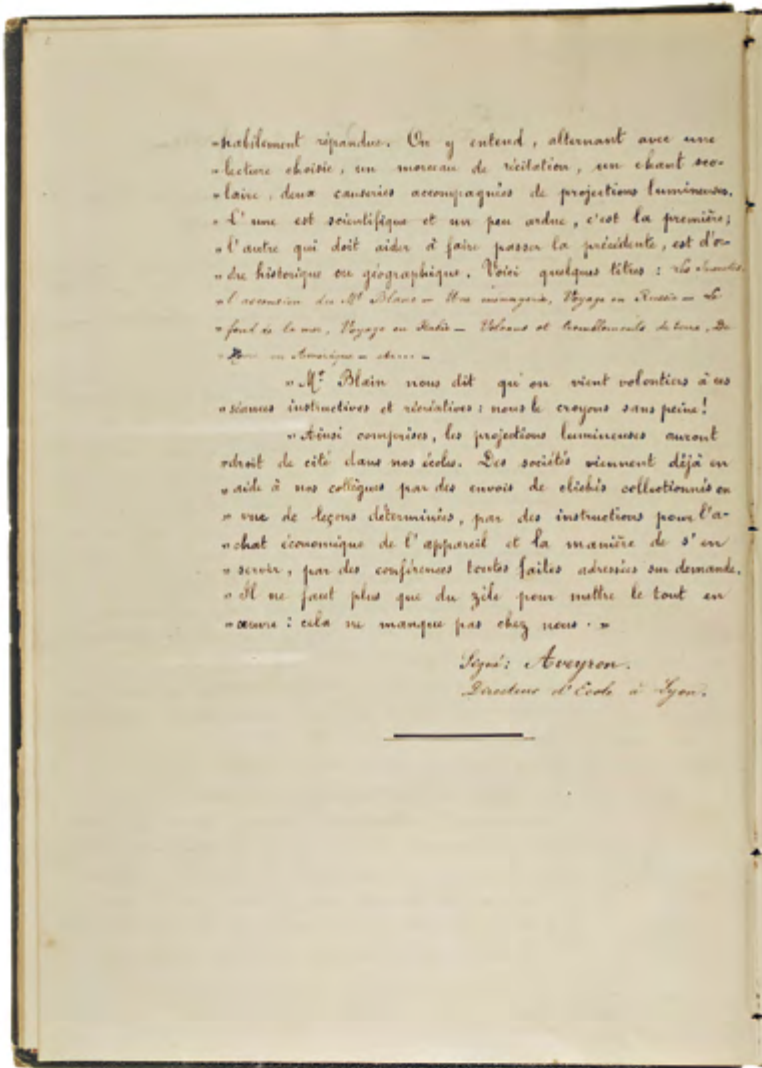 "habilement répandus. On y entend, alternant avec une
"lecture choisie, un morceau de récitation, un chant sco-
"laire, deux causeries accompagnées de projections lumineuses.
"L'une est scientifique et un peu ardue, c'est la première;
"l'autre qui doit aider à faire passer la précédente, est d'or-
"dre historique ou géographique. Voici quelques titres : Les
"l'ascension du Mt Blanc – Une ménagerie, Voyage en Russie – Le
"fond de la mer, Voyage en Italie – Volcans et tremblements de terre, Du
" en Amérique – etc... –
"Mr Blain nous dit qu'on vient volontiers à ces
"séances instructives et récréatives : nous le croyons sans peine !
"Ainsi comprises, les projections lumineuses auront
"droit de cité dans nos écoles. Des sociétés viennent déjà en
"aide à nos collègues par des envois de clichés collectionnés en
"vue de leçons déterminées, par des instructions pour l'a-
"chat économique de l'appareil et la manière de s'en
"servir, par des conférences toutes faites adressées sur demande.
"Il ne faut plus que du zèle pour mettre le tout en
"œuvre : cela ne manque pas chez nous. "
Signé : Aveyron.
Directeur d'Ecole à Lyon.